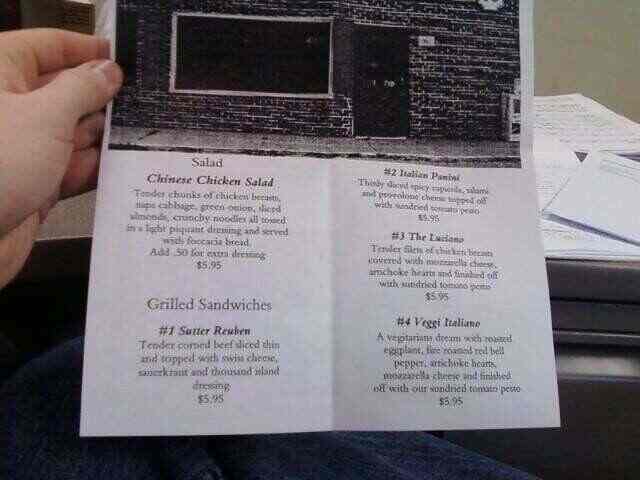 Salad
Chinese Chicken Salad
Tender chunks of chicken breasts,
napa cabbage, green onion, sliced
almonds, crunchy noodles all tossed
in a light piquant dressing and served
with foccacia bread.
Add .50 for extra dressing
$5.95
Grilled Sandwiches
#1 Sutter Reuben
Tender corned beef sliced thin
and topped with swiss cheese,
sauerkraut and thousand island
dressing
$5.95
#2 Italian Panini
Thinly sliced spicy capicola, salami
and provolone cheese topped off
with sundried tomato pesto
$5.95
#3 The Luciano
Tender filets of chicken breasts
covered with mozzarella cheese,
artichoke hearts and finished off
with sundried tomato pesto
$5.95
#4 Veggi Italiano
A vegitarians dream with roasted
eggplant, fire roasted red bell
pepper, artichoke hearts,
mozzarella cheese and finished
off with our sundried tomato pesto
$5.95